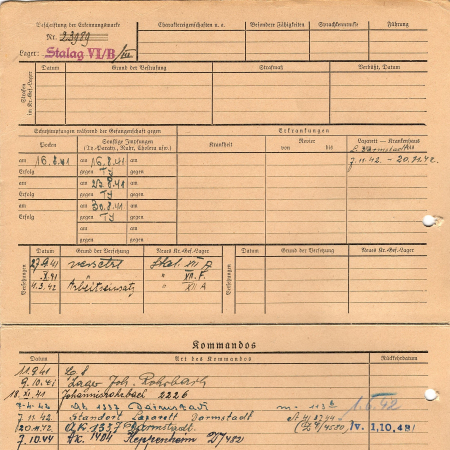 Beschriftung der Erkennungsmarke
Nr. 23989
Lager: Stalag VI/B/
Charaktereigenschaften u. a.
Besondere Fähigkeiten
Sprachkenntnisse
Führung
Strafen im Kr.-Gef.-Lager
Datum
Grund der Bestrafung
Strafmaß
Verbüßt, Datum
Schutzimpfungen während der Gefangenschaft gegen
Erkrankungen
Pocken
Sonstige Impfungen
(Ty.-Paratx., Ruhr, Cholera usw.)
Krankheit
Revier
von bis
Lazarett — Krankenhaus
von bis
am 16.8.41
am 16.8.41
am
Erfolg
gegen Ty
gegen
7.11.42. – 20.11.42.
am
am 23.8.41
am
Erfolg
gegen Ty
gegen
am
am 30.8.41
am
Erfolg
gegen Ty
gegen
Versetzungen
Datum
Grund der Versetzung
Neues Kr.-Gef.-Lager
Versetzungen
Datum
Grund der Versetzung
Neues Kr.-Gef.-Lager
versetzt
Stal. XII A
.X.41 " " XII.F.
4.3.42 Arbeitseinsatz " XII A
Kommandos
Datum
Art des Kommandos
Rückkehrdatum
9.10.41 Lager Joh. Rohrbach
18.XI.41 Johannisrohrbach 2226
7.4.42 1337 Darmstadt
1.6.42
7.11.42. Standort Lazarett Darmstadt
20.11.42 A.K. 1337 Darmstadt
1.10.43
7.10.44 A.K. 1404 Heppenheim